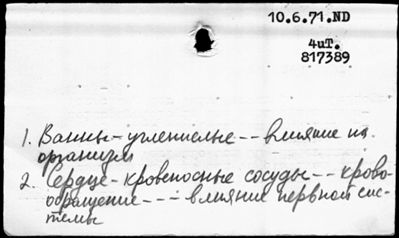 10.6.71.ND
4иТ.
817389
1. Ванны-углекислые -- влияние на
организм
2. Сердце-кровеносные сосуды -- крово-
обращение --- влияние нервной сис-
темы